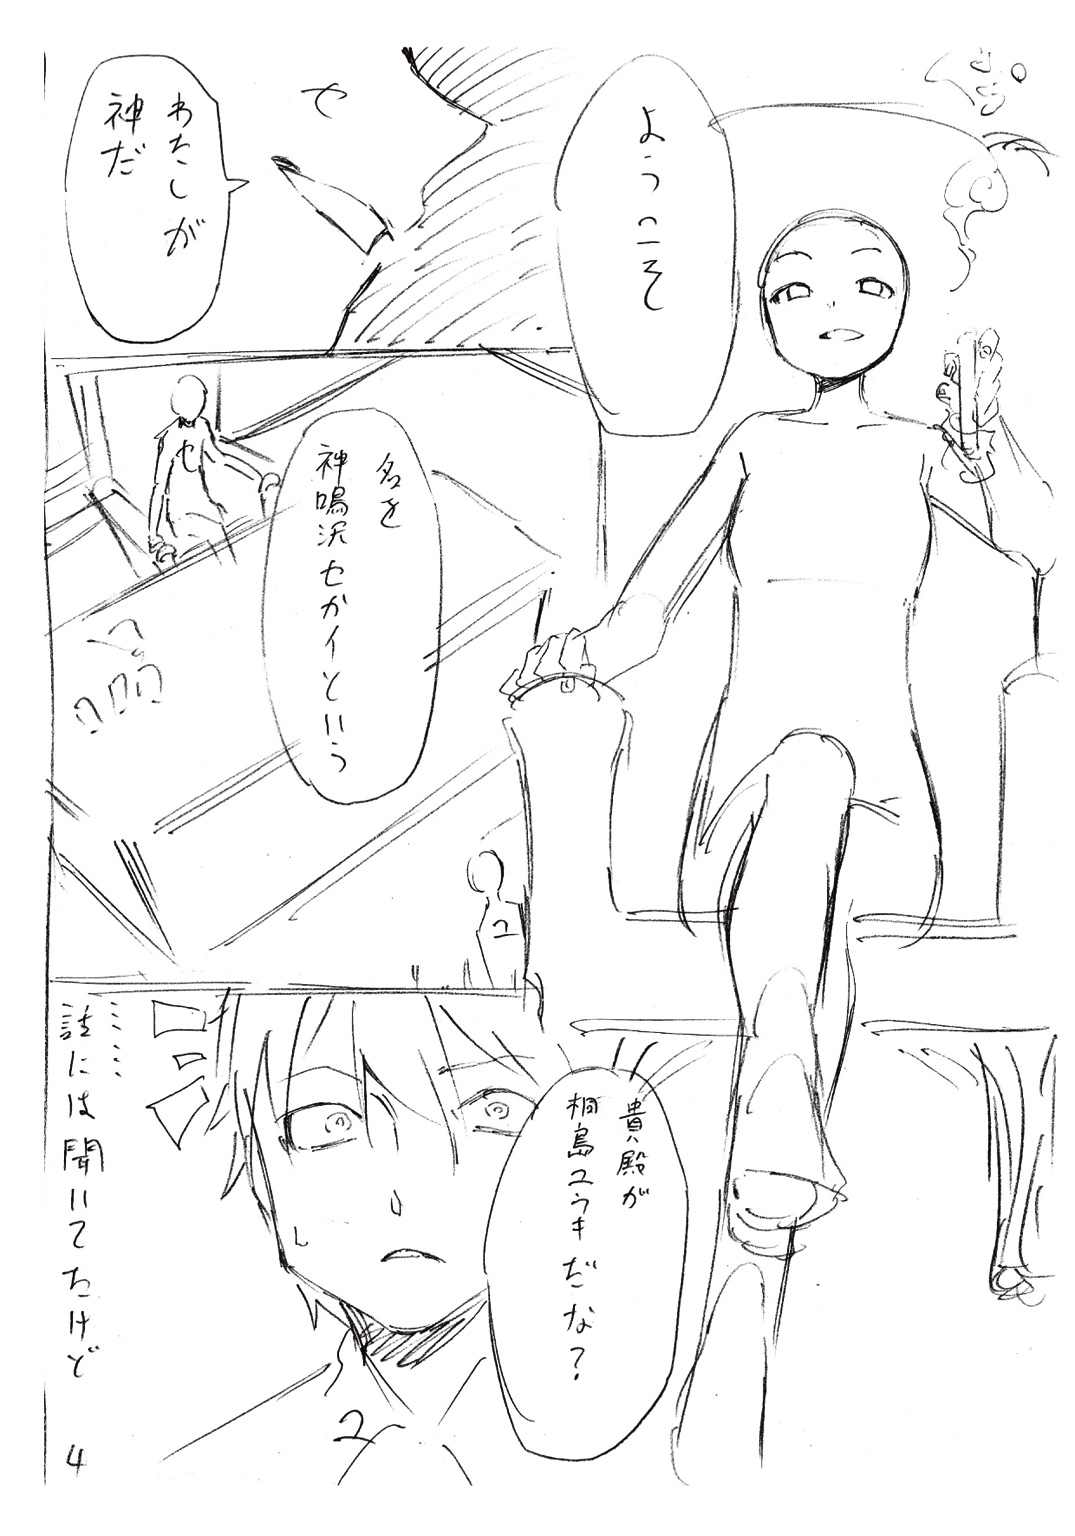 ようこそ
わたしが
神だ
セ
名を
神鳴沢セカイという
セ
ユ
貴殿が
桐島ユウキだな?
ユ
……
話には聞いてたけど
4